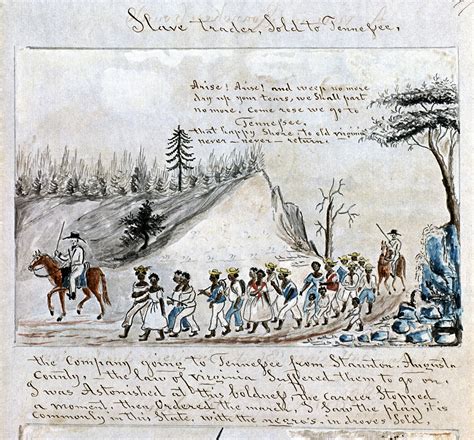 Slave trader, Sold to Tennessee,
Arise! Arise! and weep no more
dry up your tears, we shall part
no more. Come rose we go to
Tennessee,
that happy shore. to old virginia
never — never — return.
the Company going to Tennessee from Staunton, Augusta
County, — the law of virginia Suffered them to go on.
I was Astonished at this boldness, the carrier Stopped
a moment, then Ordered the march, I Saw the play it is
Commonly in this State, with the negro's in droves Sold.